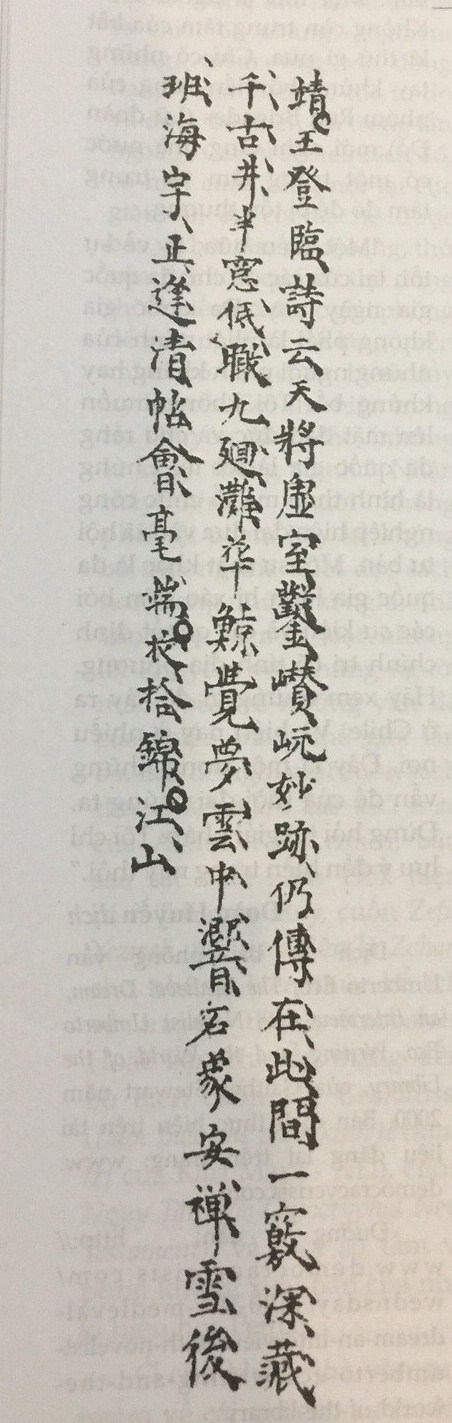 靖王登臨詩云天將虛室鑿巑岏妙跡仍傳在此間一竅深藏
千古井半窓低九廻灘華鯨覺夢雲中響蒙安禅雪後
班海宇正逢清帖會毫端收拾錦江山